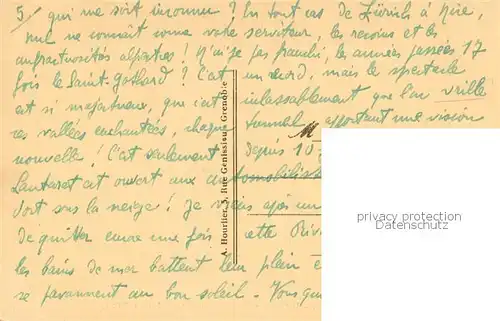 5/ qui me soit inconnu ? En tout cas de Zürich à Nice,
nul ne connait comme votre serviteur, les recoins et les
anfractuosités alpestres ! N'ai-je pas franchi, les années passées 17
fois le Saint-Gothard ? C'est un record, mais le spectacle
est si majestueux, que c'est inlassablement que l'on vrille
ces vallées enchantées, chaque tunnel apportant une vision
nouvelle ! C'est seulement depuis 10
Lautaret est ouvert aux automobilist
dort sous la neige ! Je viens après un
de quitter encore une fois cette Rivi
les bains de mer battent leur plein e
se pavannent au bon soleil - Vous qu
A. Hourlier, 3, Rue Genissieu, Grenoble
privacy protection
Datenschutz